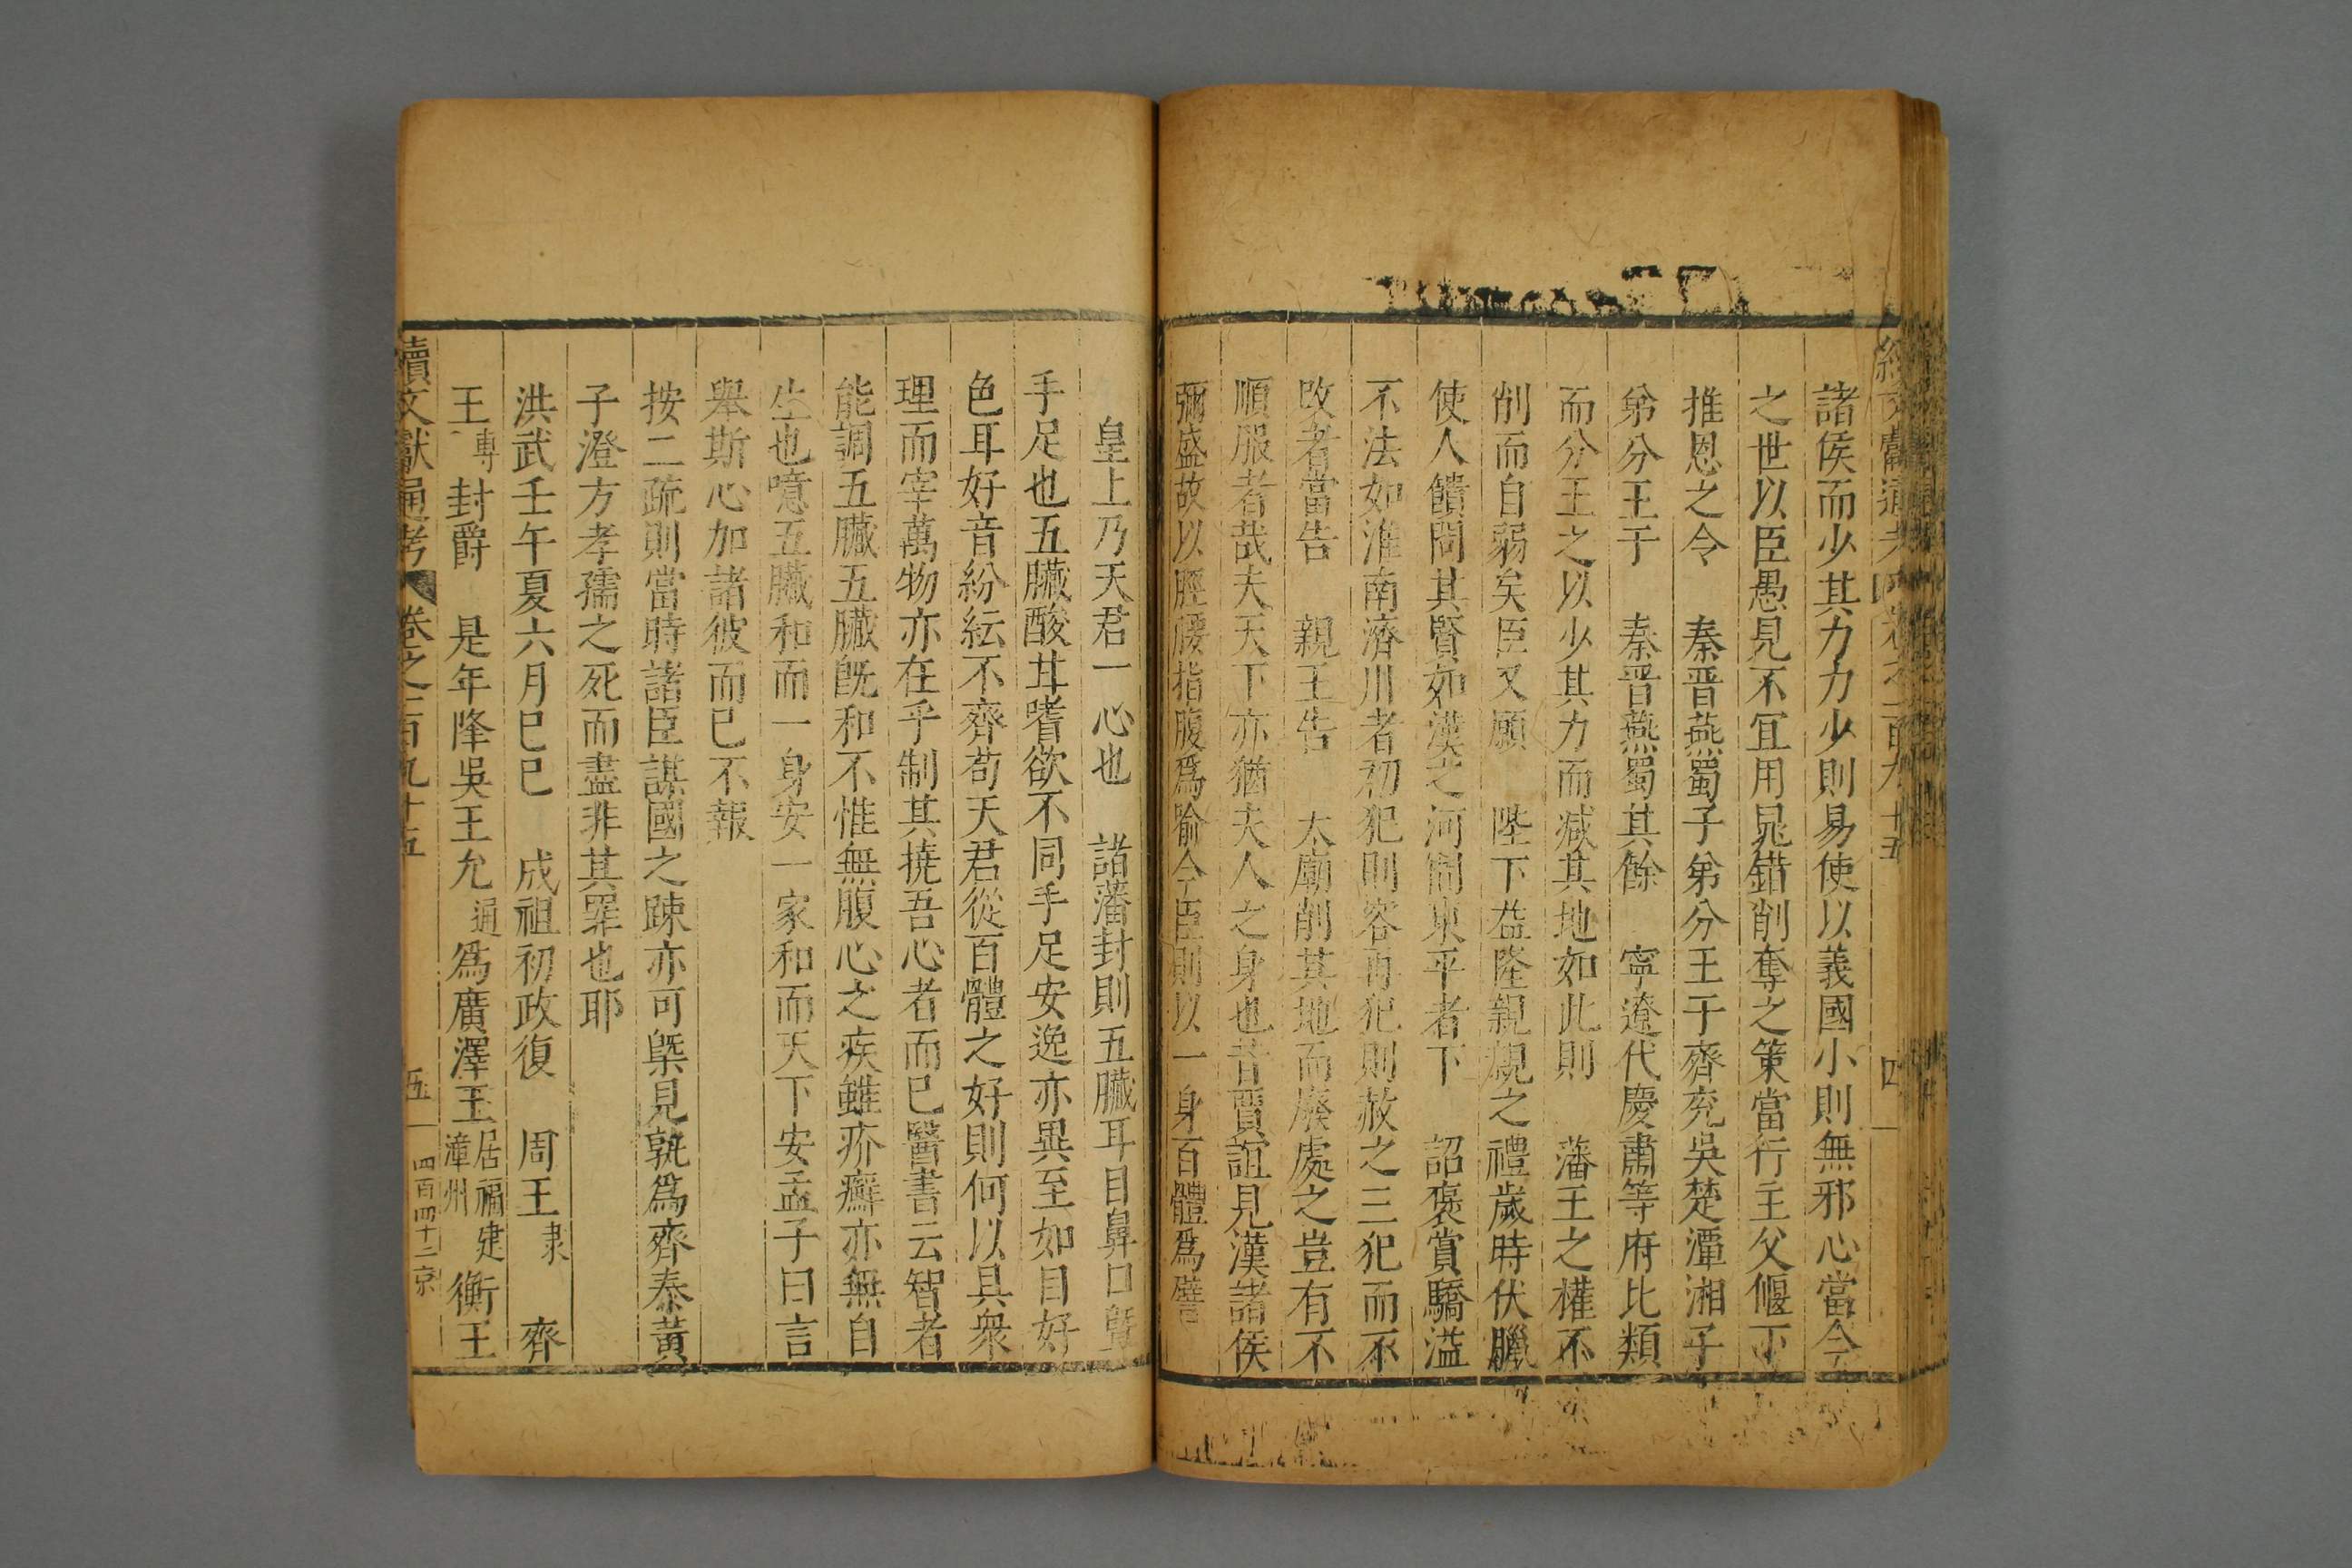 諸侯而少其力力少則易使以義國小則無邪心當今
之世以臣愚見不宜用晁錯削奪之策當行主父偃下
推恩之令 秦晋燕蜀子弟分王于齊兖吳楚潭湘子
弟分王于 秦晋燕蜀其餘 寧遼代慶肅等府比類
而分王之以少其力而减其地如此則 藩王之權不
削而自弱矣臣又願 陛下益隆親親之禮歲時伏臘
使人饋問其賢如漢之河間東平者下 詔褒賞驕溢
不法如淮南濟川者初犯則容再犯則赦之三犯而不
改者當告 親王告 太廟削其地而廢處之豈有不
順服者哉夫天下亦猶夫人之身也昔賈誼見漢諸侯
彌盛故以脛腰指腹爲喻今臣則以一身百體爲譬
皇上乃天君一心也 諸藩封則五臟耳目鼻口曁
手足也五臟酸甘嗜欲不同手足安逸亦異至如目好
色耳好音紛紜不齊苟天君從百體之好則何以具衆
理而宰萬物亦在乎制其撓吾心者而已醫書云智者
能調五臟五臟旣和不惟無腹心之疾雖疥癬亦無自
生也噫五臟和而一身安一家和而天下安孟子曰言
舉斯心加諸彼而已不報
按二疏則當時諸臣謀國之踈亦可槩見孰爲齊泰黃
子澄方孝孺之死而盡非其罪也耶
洪武壬午夏六月巳巳 成祖初政復 周王 齊
王 封爵 是年降吳王允 通 爲廣澤王 居福建漳州 衡王
續文獻通考 卷之一百九十五 五 四百四十二 京